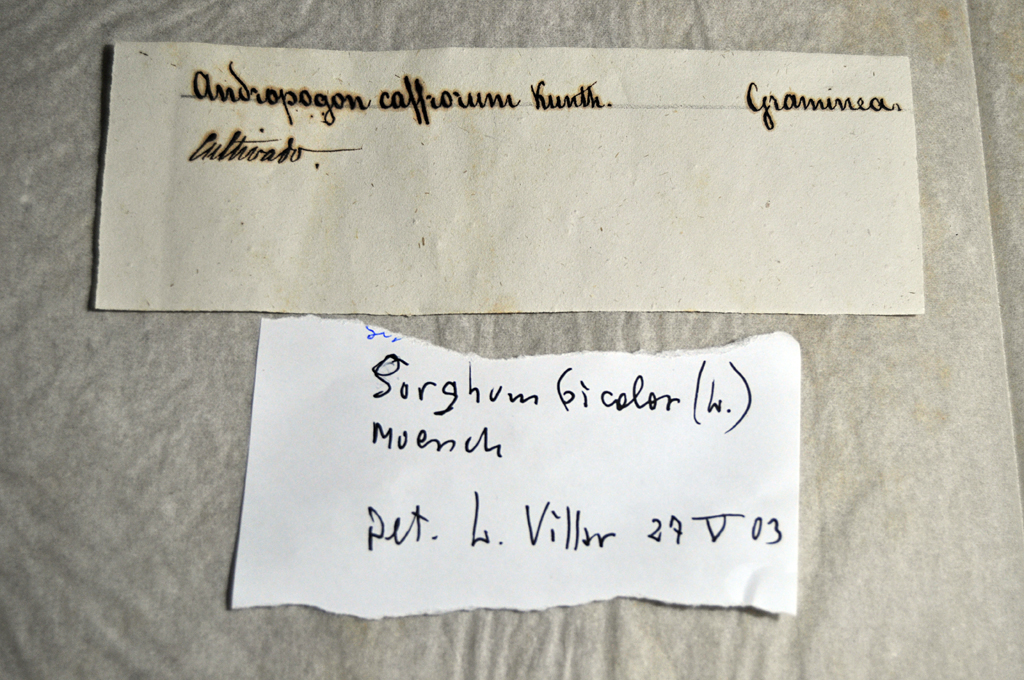 Andropogon caffrorum Kunth. Graminea.
Cultivado.
Sorghum bicolor (L.)
Moench
Det. L. Villar 27 V 03